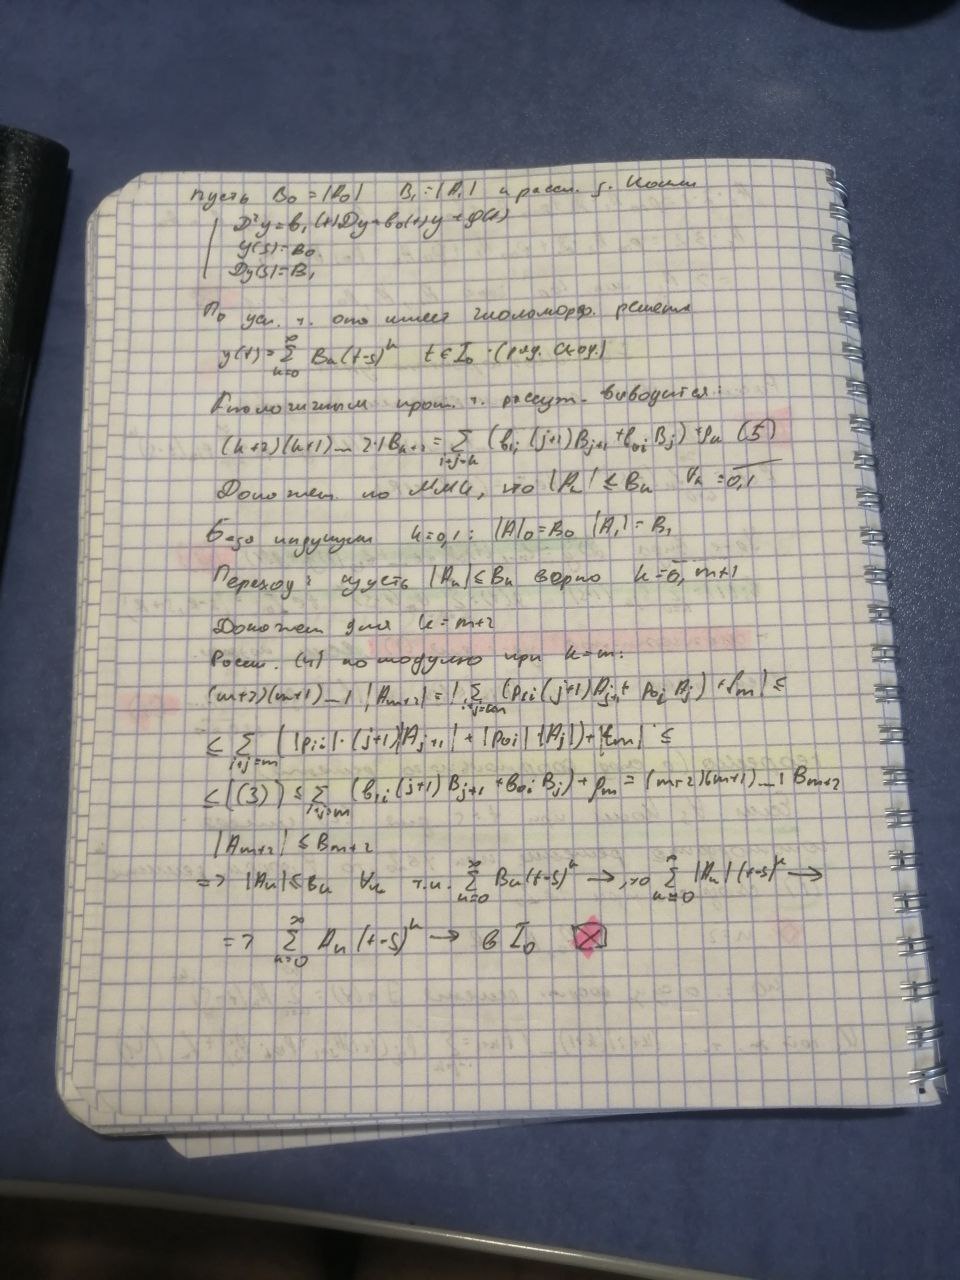 Пусть B₀ = |A₀| B₁ = |A₁| и рассм. з. Коши
D²y = b₁(t)Dy + b₀(t)y + φ(t)
y(s) = B₀
Dy(s) = B₁
По усл. т. оно имеет голоморф. решение
y(t) = ∑_{k=0}^{∞} Bₖ(t-s)ᵏ t ∈ I₀
Аналогичным прош. т. рассужд. выводится:
(k+2)(k+1)...2·1Bₖ₊₂ = ∑_{i+j=k} (b₁ᵢ(j+1)Bⱼ₊₁ + b₀ᵢBⱼ) + φₖ (5)
Докажем по ММИ, что |Aₖ| ≤ Bₖ ∀k = 0,1
База индукции k=0,1: |A|₀=B₀ |A₁|=B₁
Переход: пусть |Aₖ| ≤ Bₖ верно k=0, m+1
Докажем для k=m+2
Рассм. (4) по модулю при k=m:
(m+2)(m+1)...1 |Aₘ₊₂| = |∑_{i+j=m} (p₁ᵢ(j+1)Aⱼ₊₁ + p₀ᵢ Aⱼ) + fₘ| ≤
≤ ∑_{i+j=m} (|p₁ᵢ|·(j+1)|Aⱼ₊₁| + |p₀ᵢ|·|Aⱼ|) + |fₘ| ≤
≤ |(3)| ≤ ∑_{i+j=m} (b₁ᵢ(j+1)Bⱼ₊₁ + b₀ᵢBⱼ) + φₘ = (m+2)(m+1)...1 Bₘ₊₂
|Aₘ₊₂| ≤ Bₘ₊₂
=> |Aₖ| ≤ Bₖ ∀k т.к. ∑_{k=0}^{∞} Bₖ(t-s)ᵏ →, то ∑_{k=0}^{∞} |Aₖ|(t-s)ᵏ →
=> ∑_{k=0}^{∞} Aₖ(t-s)ᵏ → в I₀